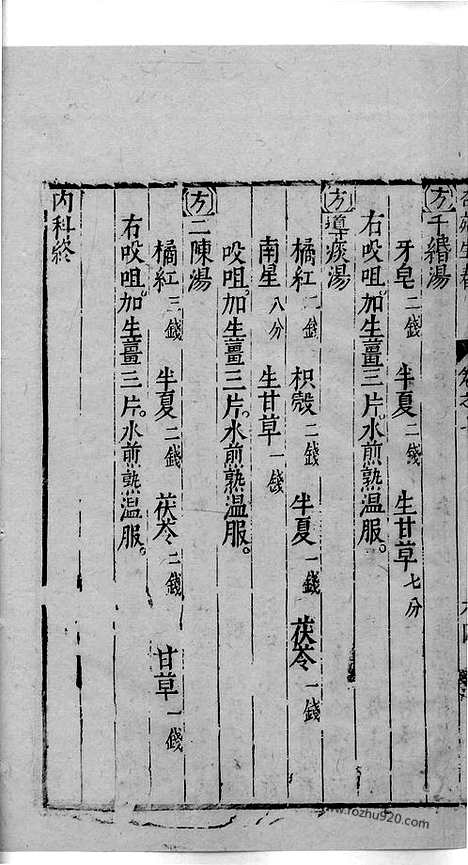 方千緡湯
牙皂二錢 半夏二錢 生甘草七分
右㕮咀。加生薑三片。水煎熟温服。
方導痰湯
橘紅二錢 枳殼二錢 半夏一錢 茯苓一錢
南星八分 生甘草一錢
㕮咀。加生薑三片。水煎熟温服。
方二陳湯
橘紅三錢 半夏二錢 茯苓二錢 甘草一錢
右㕮咀。加生薑三片。水煎熟温服。
內科終
www.rozhu920.com